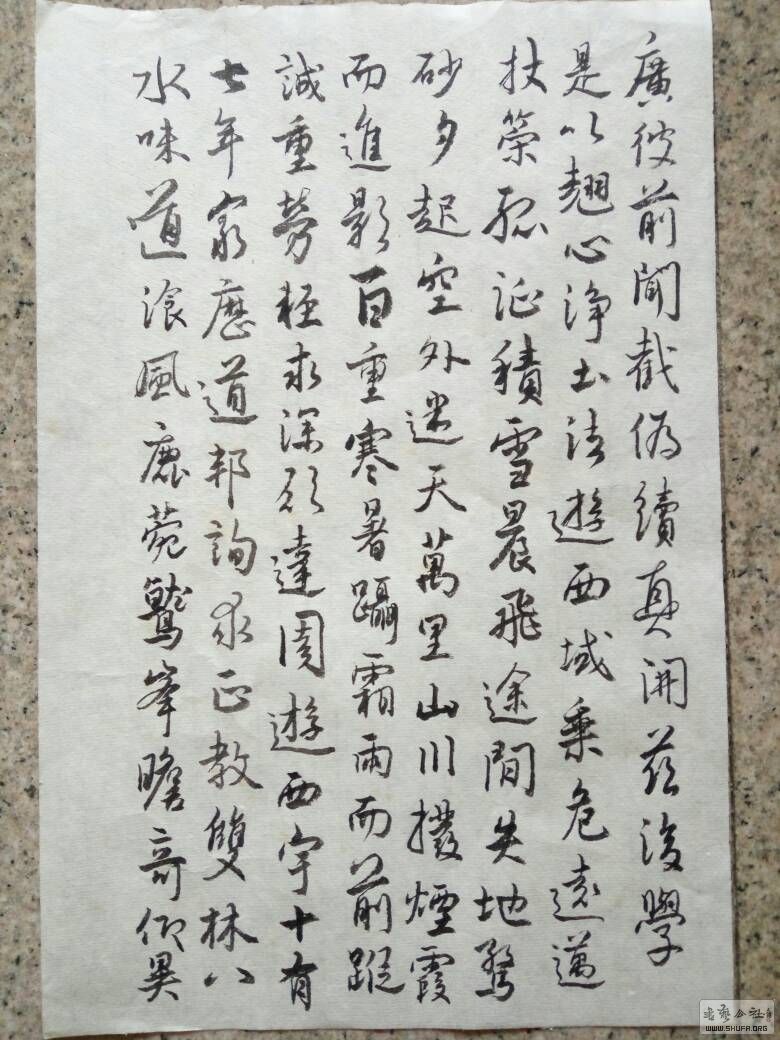 廣彼前聞截偽續真開茲後學
是以翹心淨土法遊西域乘危遠邁
杖策孤征積雪晨飛途間失地驚
砂夕起空外迷天萬里山川撥煙霞
而進影百重寒暑躡霜雨而前蹤
誠重勞輕求深願達周遊西宇十有
七年窮歷道邦詢求正教雙林八
水味道飡風鹿菀鷲峯瞻奇仰異
WWW.SHUFA.ORG